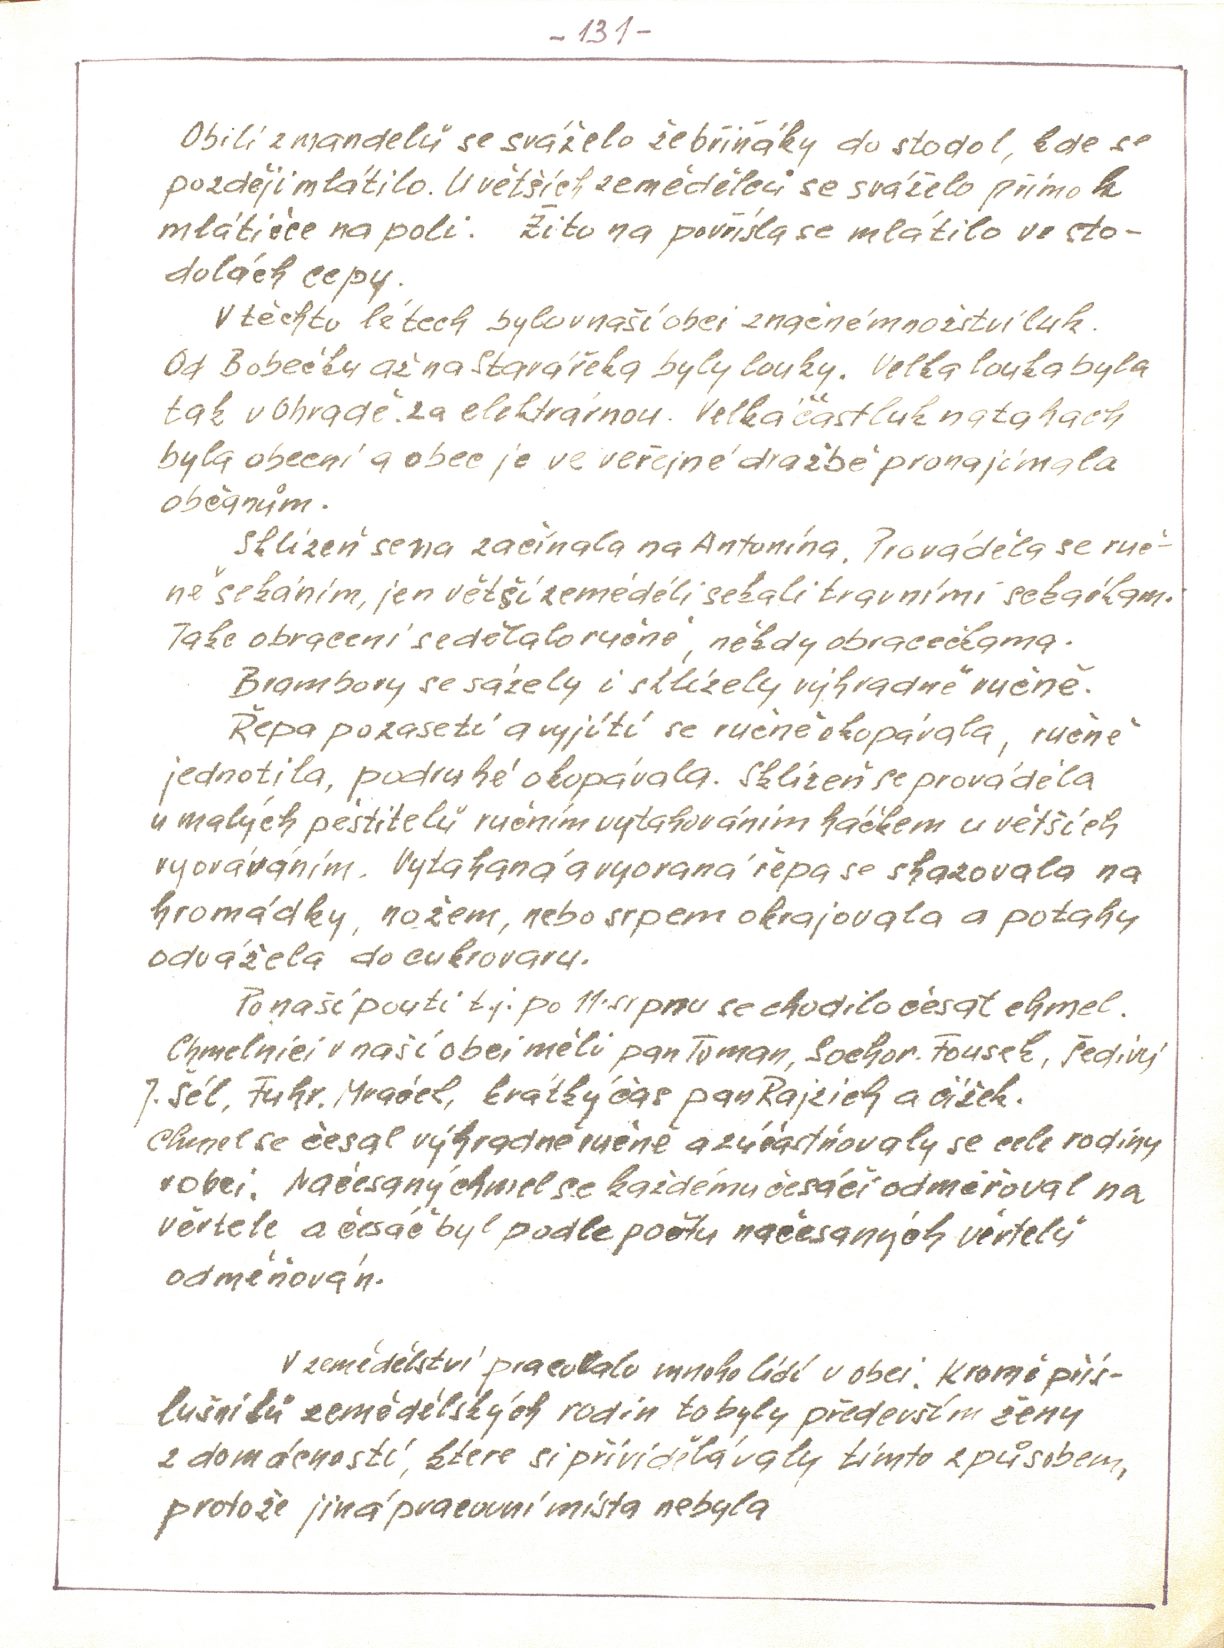 - 131 -
Obilí z mandelů se sváželo žebřiňáky do stodol, kde se
později mlátilo. U větších zemědělců se sváželo přímo k
mlátičce na poli. Žito na povřísla se mlátilo ve sto-
dolách cepy.
V těchto létech bylo v naší obci značné množství luk.
Od Bobečku až na Stará řeka byly louky. Velká louka byla
tak v Ohradě za elektrárnou. Velká část luk na tahach
byla obecní a obec je ve veřejné dražbě pronajímala
občanům.
Sklizeň sena začínala na Antonína. Prováděla se ruč-
ně sekáním, jen větší zeměděli sekali travními sekačkam.
Také obracení se dělalo ručně, někdy obracečkama.
Brambory se sázely i sklízely výhradně ručně.
Řepa po zasetí a vyjití se ručně okopávala, ručně
jednotila, podruhé okopávala. Sklizeň se prováděla
u malých pěstitelů ručním vytahováním háčkem u větších
vyoráváním. Vytahaná a vyoraná řepa se shazovala na
hromádky, nožem, nebo srpem okrajovala a potahy
odvážela do cukrovaru.
Po naší pouti t.j. po 11. srpnu se chodilo česat chmel.
Chmelnici v naší obci měli pan Tuman, Sochor. Fousek, Šedivý
J. Šél, Fuhr, Mráček, krátký čas pan Rajzich a Čížek.
Chmel se česal výhradně ručně a zúčastňovaly se celé rodiny
v obci. Načesaný chmel se každému česáči odměřoval na
věrtele a česáč byl podle počtu načesaných věrtelů
odměňován.
V zemědělství pracovalo mnoho lidí v obci. Kromě přís-
lušníků zemědělských rodin to byly především ženy
z domácností, které si přividělávaly tímto způsobem,
protože jiná pracovní místa nebyla